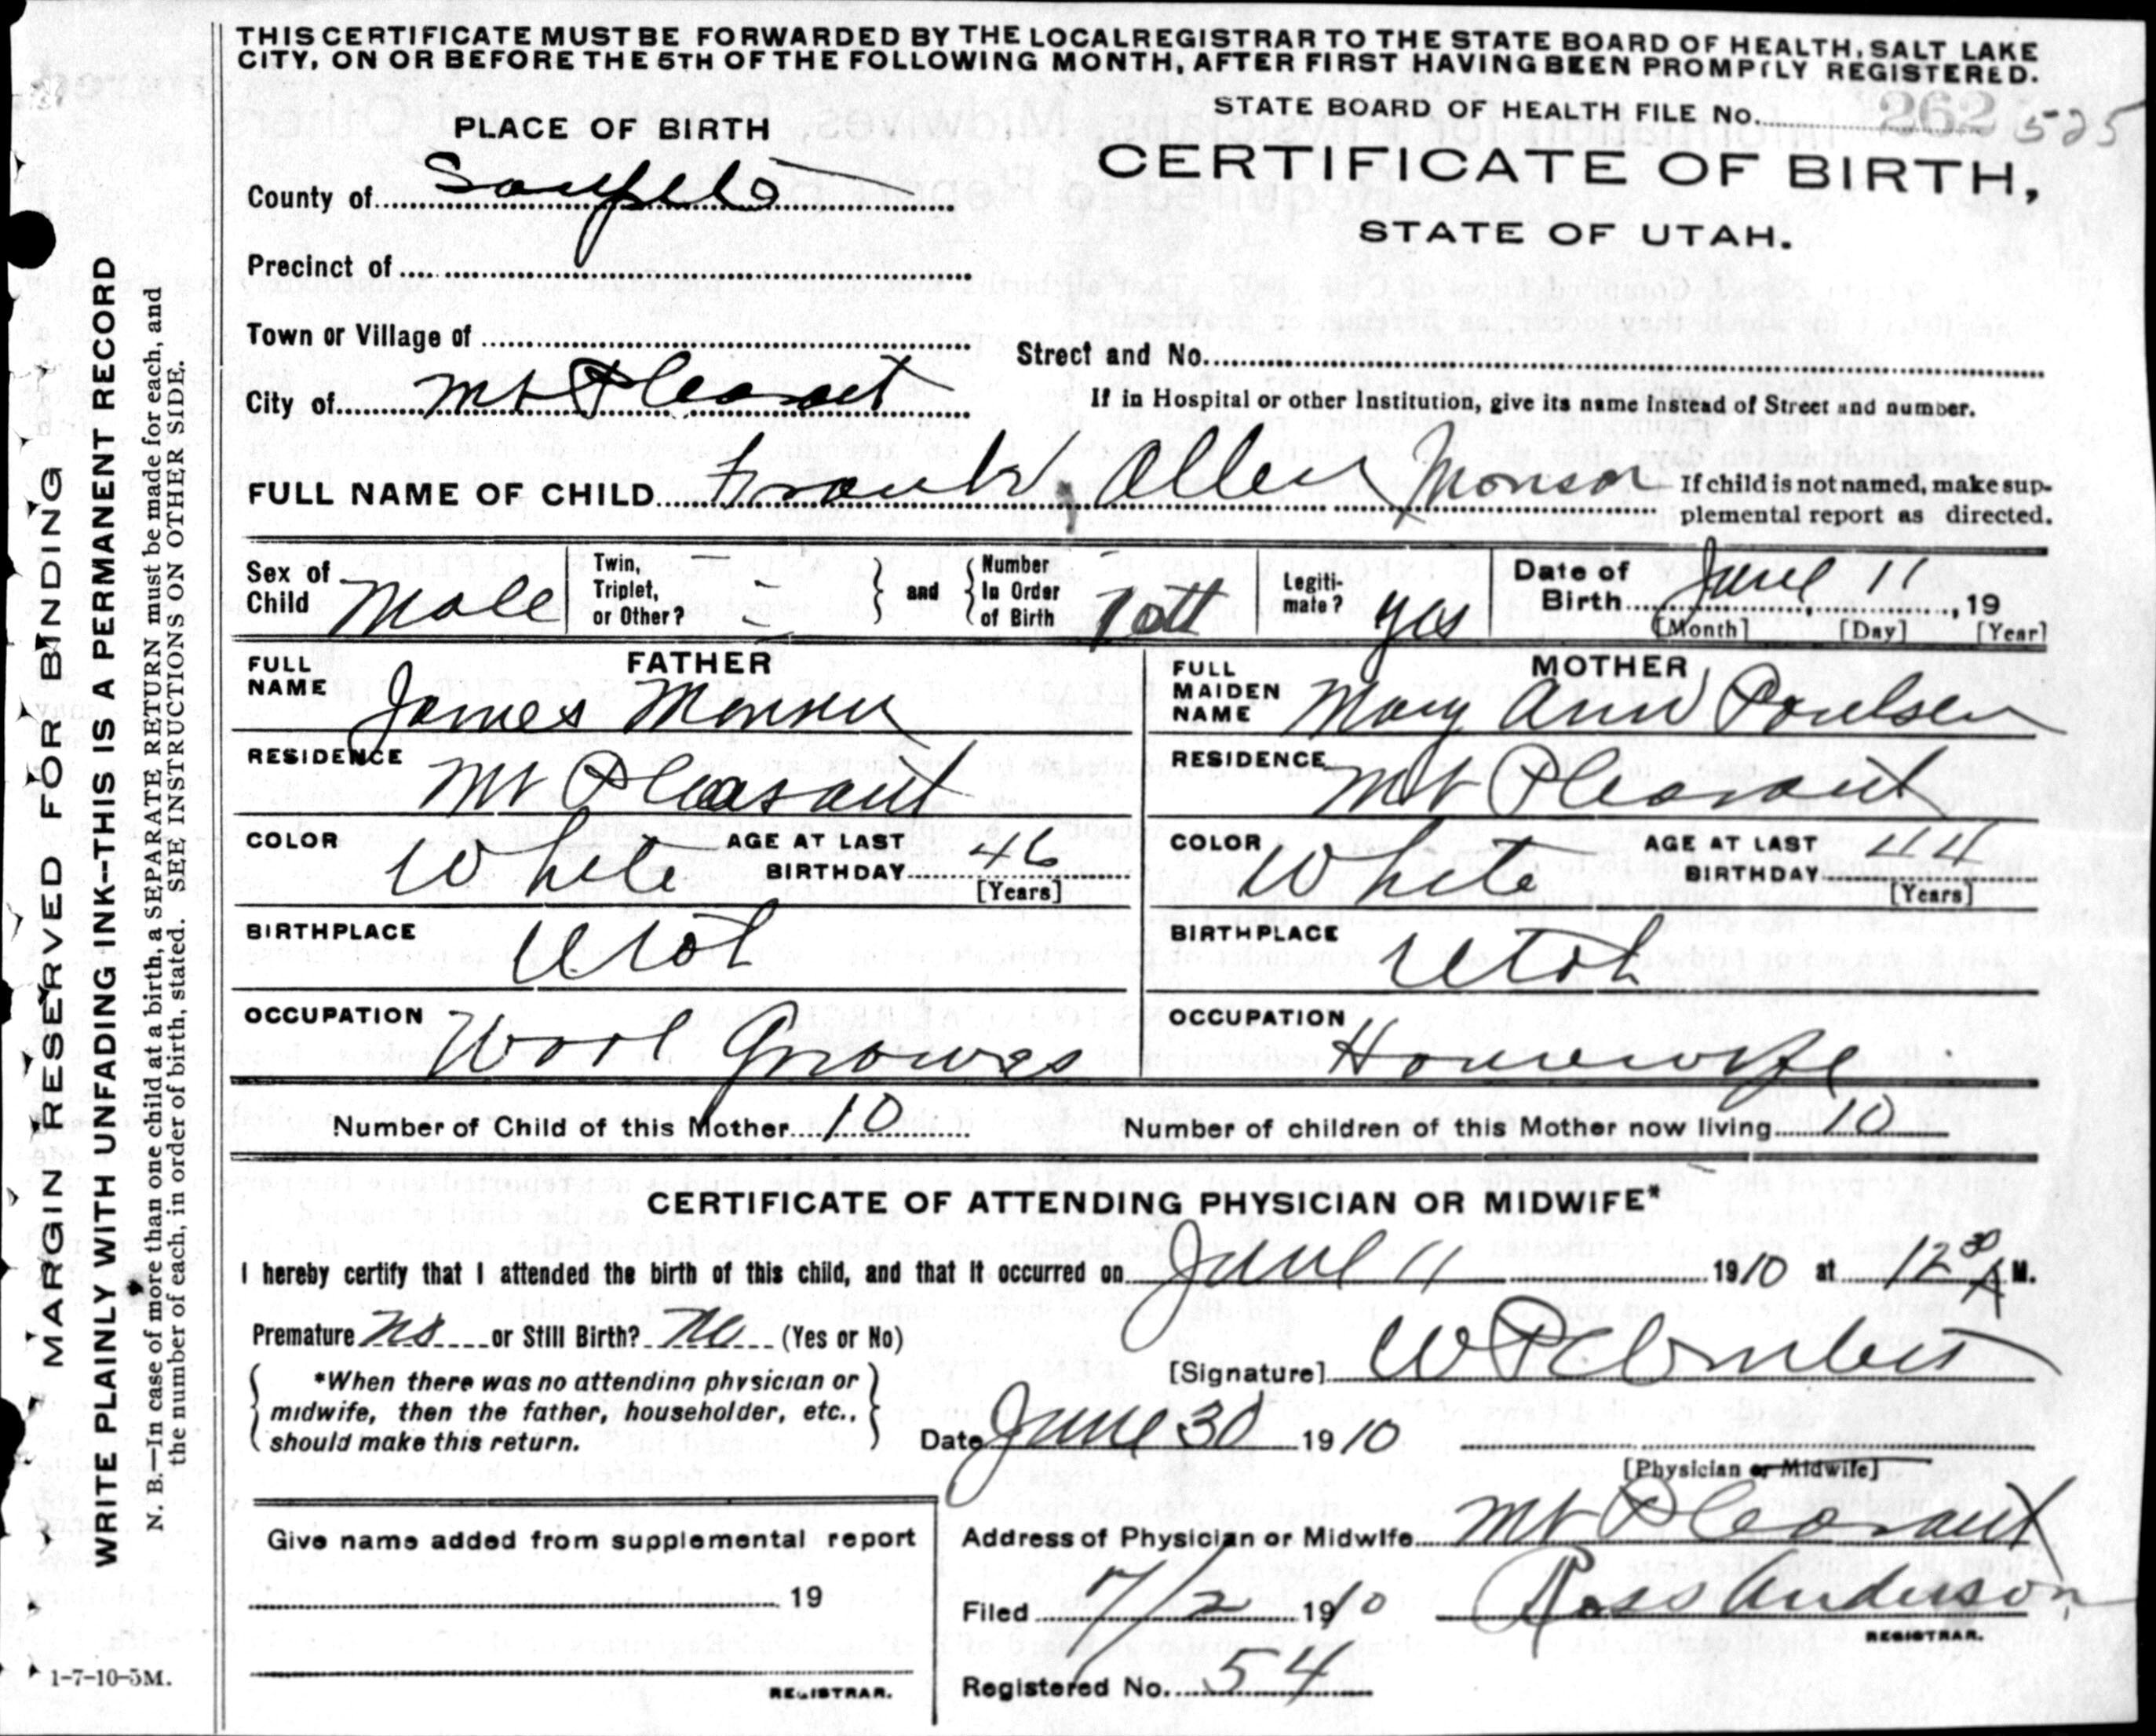 THIS CERTIFICATE MUST BE FORWARDED BY THE LOCAL REGISTRAR TO THE STATE BOARD OF HEALTH, SALT LAKE
CITY, ON OR BEFORE THE 5TH OF THE FOLLOWING MONTH, AFTER FIRST HAVING BEEN PROMPTLY REGISTERED.
STATE BOARD OF HEALTH FILE No. 262 525
PLACE OF BIRTH
CERTIFICATE OF BIRTH,
STATE OF UTAH.
County of Sanpete
Precinct of
Town or Village of
Street and No.
City of Mt Pleasant
If in Hospital or other Institution, give its name instead of Street and number.
FULL NAME OF CHILD Frank Allen Monson
If child is not named, make sup-
plemental report as directed.
Sex of Child Male
Twin, Triplet, or Other?
and
Number In Order of Birth 10th
Legiti-mate? yes
Date of Birth June 11, 19
[Month] [Day] [Year]
FATHER
FULL NAME James Monsen
MOTHER
FULL MAIDEN NAME Mary Ann Poulsen
RESIDENCE Mt Pleasant
RESIDENCE Mt Pleasant
COLOR White AGE AT LAST BIRTHDAY 46 [Years]
COLOR White AGE AT LAST BIRTHDAY 44 [Years]
BIRTHPLACE Utah
BIRTHPLACE Utah
OCCUPATION Wool Grower
OCCUPATION Housewife
Number of Child of this Mother 10
Number of children of this Mother now living 10
CERTIFICATE OF ATTENDING PHYSICIAN OR MIDWIFE*
I hereby certify that I attended the birth of this child, and that it occurred on June 11 1910 at 12 30 A M.
Premature No or Still Birth? No (Yes or No)
[Signature]
*When there was no attending physician or
midwife, then the father, householder, etc.,
should make this return.
Date June 30 1910
[Physician or Midwife]
Give name added from supplemental report
19
REGISTRAR.
Address of Physician or Midwife Mt Pleasant
Filed 7/2 1910 Ross Anderson
REGISTRAR.
Registered No. 54
MARGIN RESERVED FOR BINDING
WRITE PLAINLY WITH UNFADING INK--THIS IS A PERMANENT RECORD
N. B.—In case of more than one child at a birth, a SEPARATE RETURN must be made for each, and
the number of each, in order of birth, stated. SEE INSTRUCTIONS ON OTHER SIDE.
1-7-10-5M.